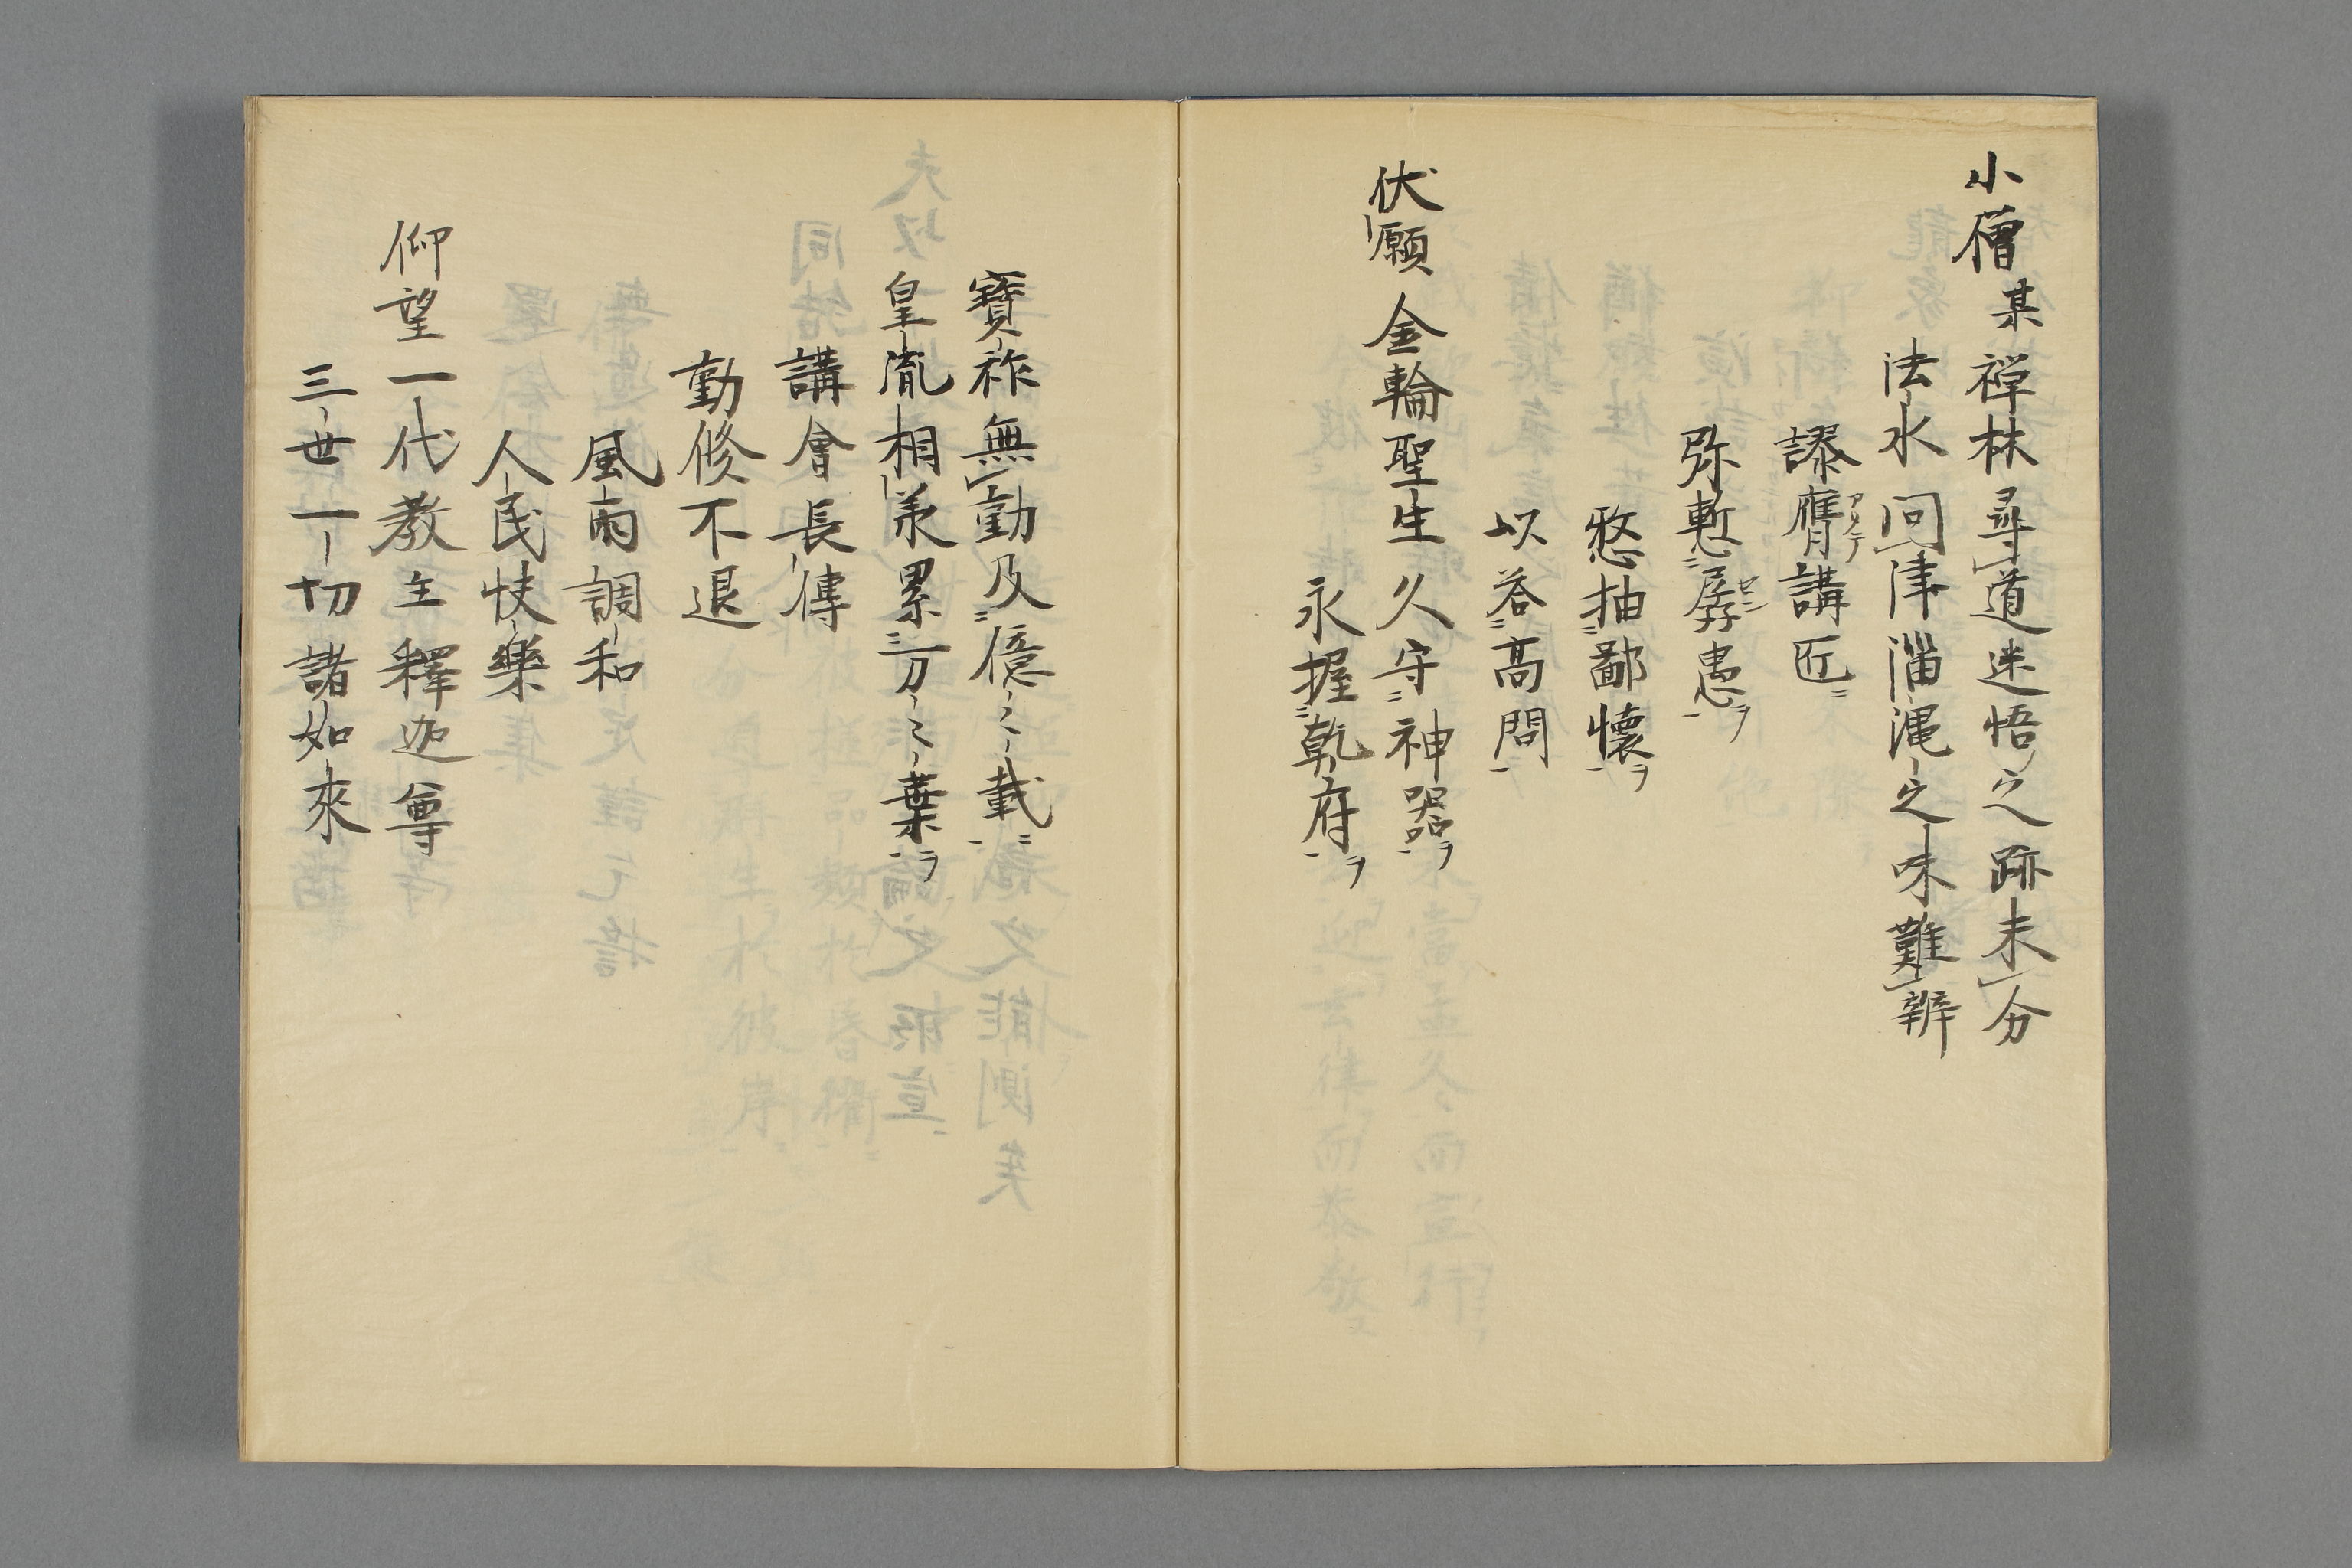 小僧某禅林尋道迷悟之跡未分
法水問津淄渑之味難辨
謬膺講匠
弥慙孱患
愗抽鄙懐
以荅高問
伏願 金輪聖生久守神器
永握乹府
寶祚無動及億〻載
皇胤相羨累万〻葉
講會長傳
勤修不退
風雨調和
人民快樂
仰望一代教主釋迦尊
三世一切諸如來